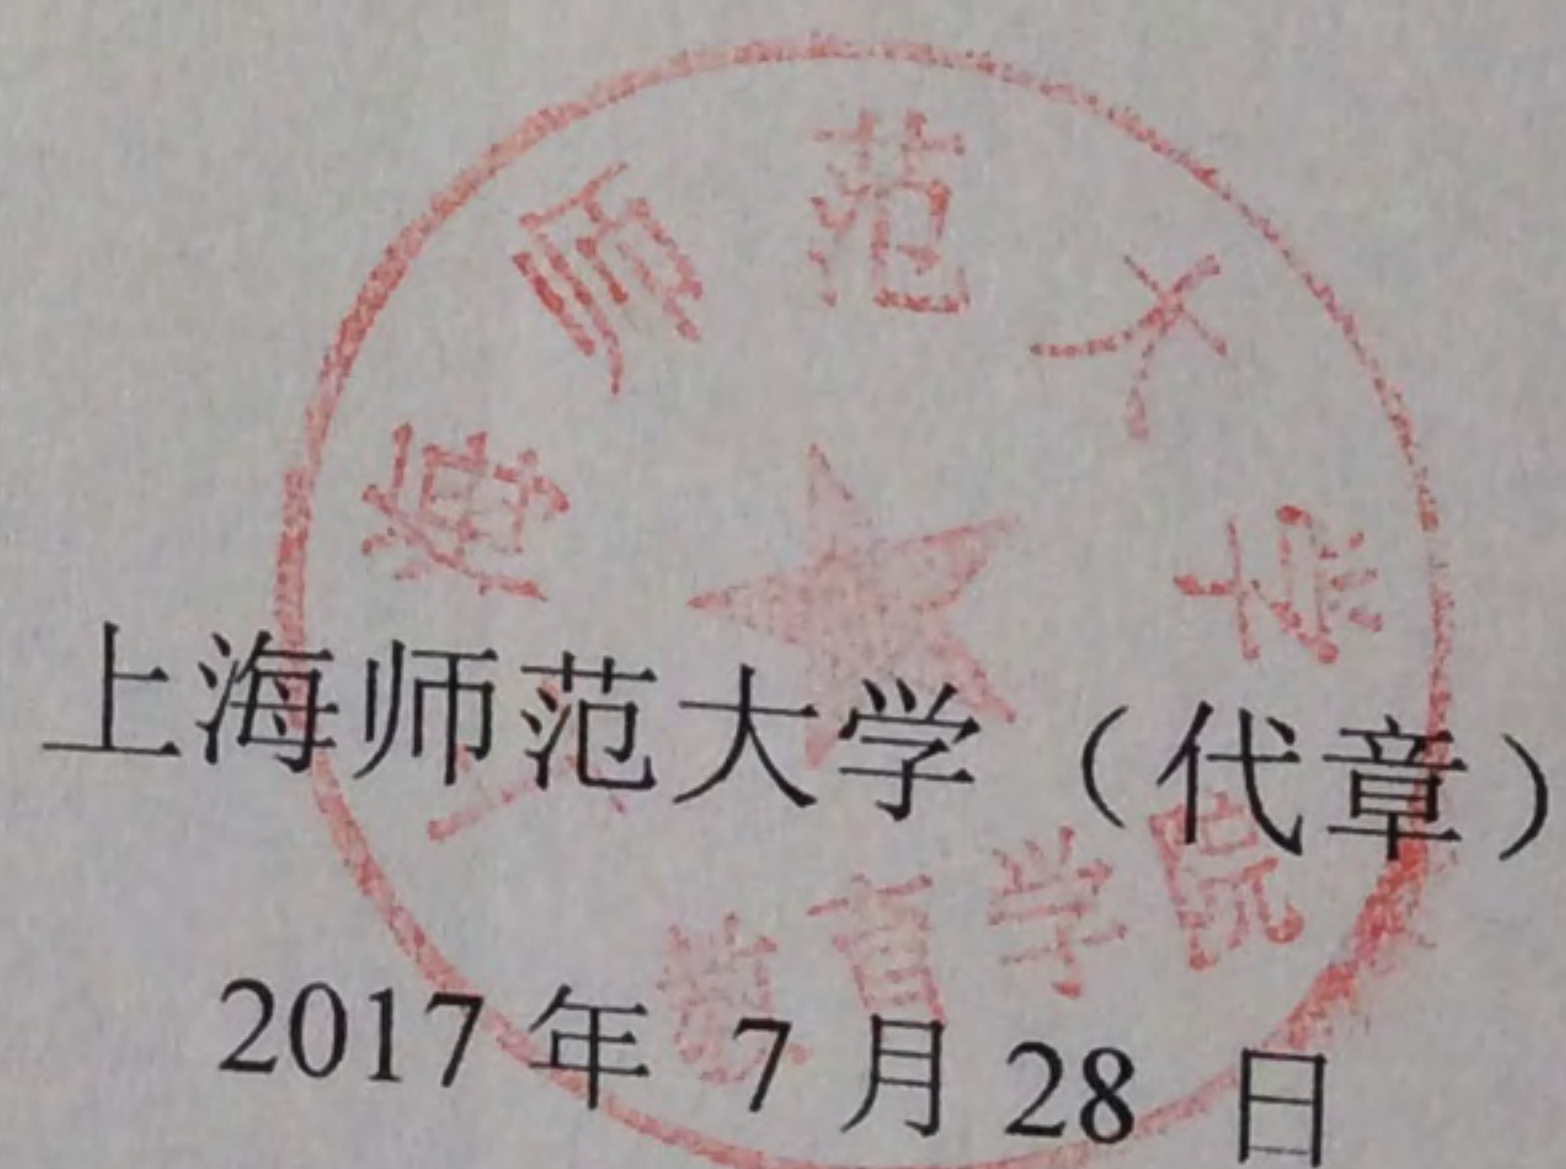 上海师范大学
教育学院
上海师范大学（代章）
2017年 7月 28 日